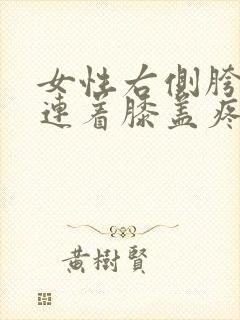 女性右側胯
連着膝盖疼
黄樹賢